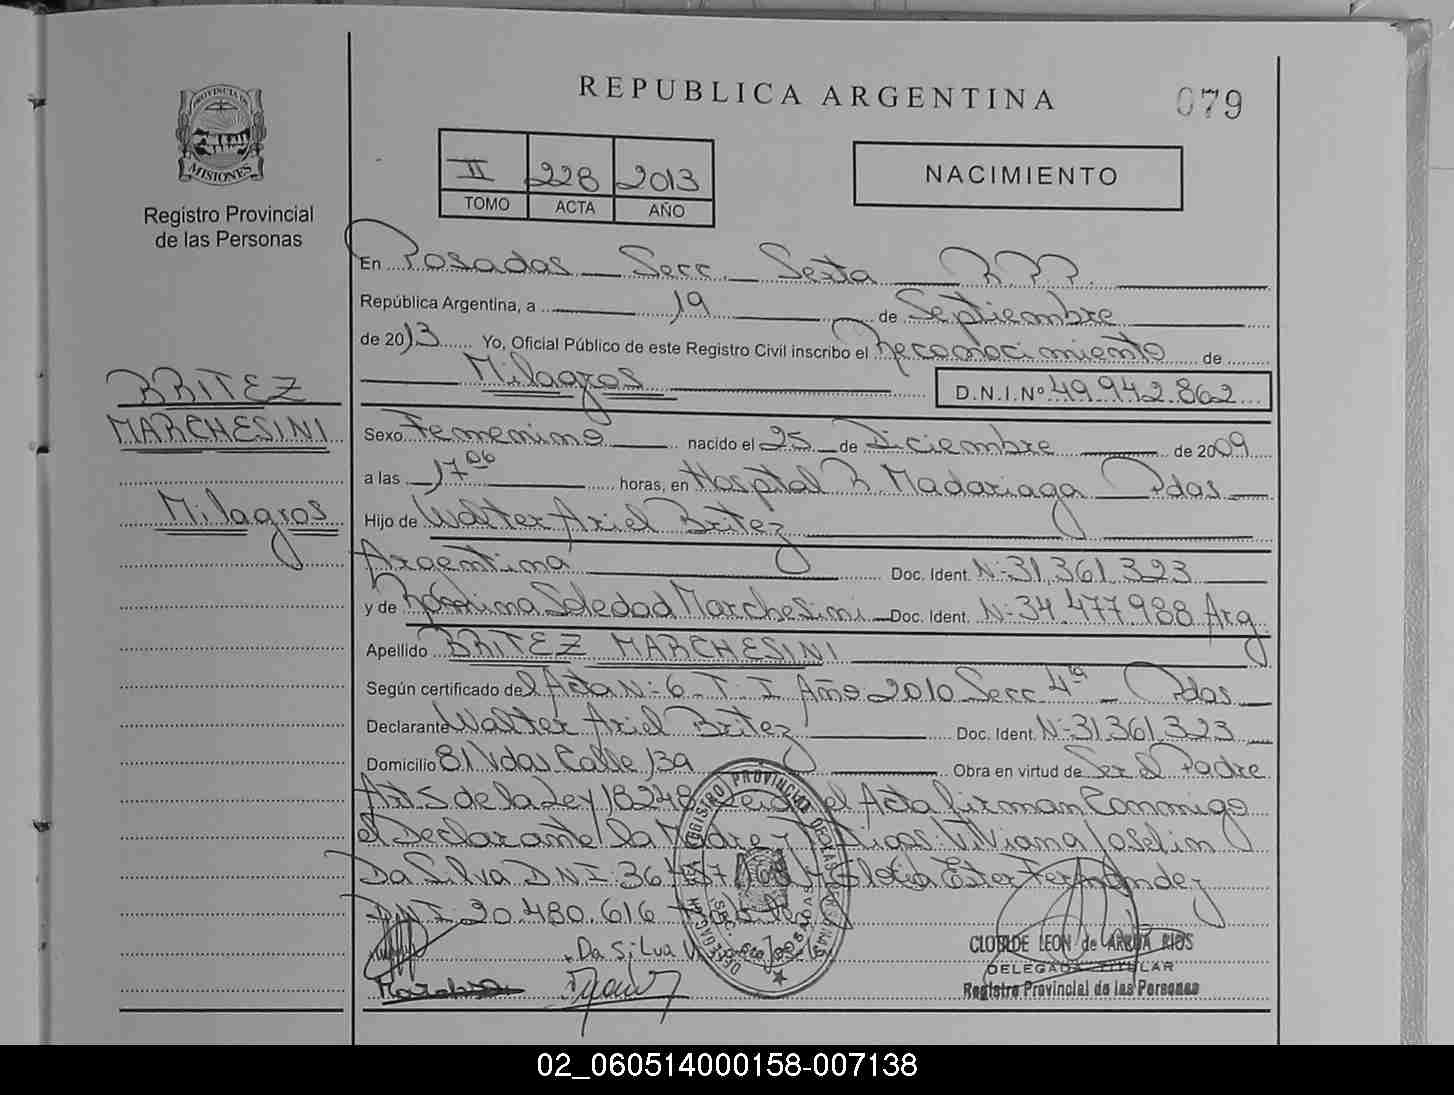 REPUBLICA ARGENTINA
079
PROVINCIA DE
MISIONES
Registro Provincial
de las Personas
II 228 2013
TOMO ACTA AÑO
NACIMIENTO
BRITEZ
MARCHESINI
Milagros
En Posadas Secc. Sexta
República Argentina, a 19 de Septiembre
de 2013 Yo, Oficial Público de este Registro Civil inscribo el Reconocimiento de
Milagros D.N.I.Nº 49.942.862
Sexo Femenino nacido el 25 de Diciembre de 2009
a las 17 06 horas, en Hospital R Madariaga Pdas
Hijo de Walter Ariel Britez
Argentina Doc. Ident. Nº 31.361.323
y de Soledad Marchesini Doc. Ident. Nº 34.477.988 Arg
Apellido BRITEZ MARCHESINI
Según certificado del Acta Nº 6 T I Año 2010 Secc 4ta Pdas
Declarante Walter Ariel Britez Doc. Ident. Nº 31.361.323
Domicilio 81 Vdas Calle 139 Obra en virtud de Ser el Padre
Art 5 de la Ley 18248 Leida el Acta firman Conmigo
el Declarante la Madre y Tigos: Viviana Joselin
Da Silva DNI 36 Ester Fernandez
DNI 20.480.616
Da Silva V
CLOTILDE LEON de ARRUA RIOS
DELEGADA TITULAR
Registro Provincial de las Personas
02_060514000158-007138